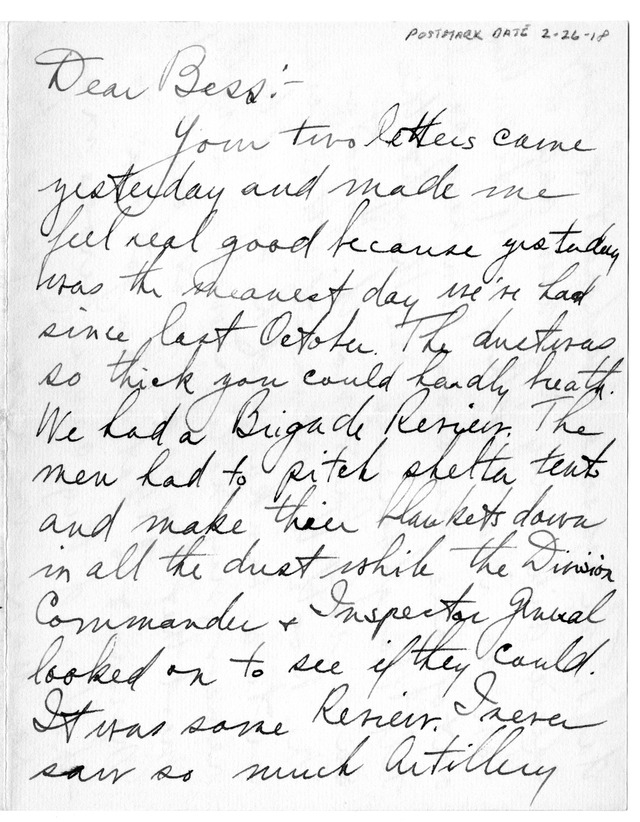 POSTMARK DATE 2-26-18
Dear Bess:-
Your two letters came
yesterday and made me
feel real good because yesterday
was the meanest day we've had
since last October. The dust was
so thick you could hardly breath.
We had a Brigade Review. The
men had to pitch shelter tents
and make their blankets down
in all the dust while the Division
Commander + Inspector General
looked on to see if they could.
It was some Review. I never
saw so much Artillery